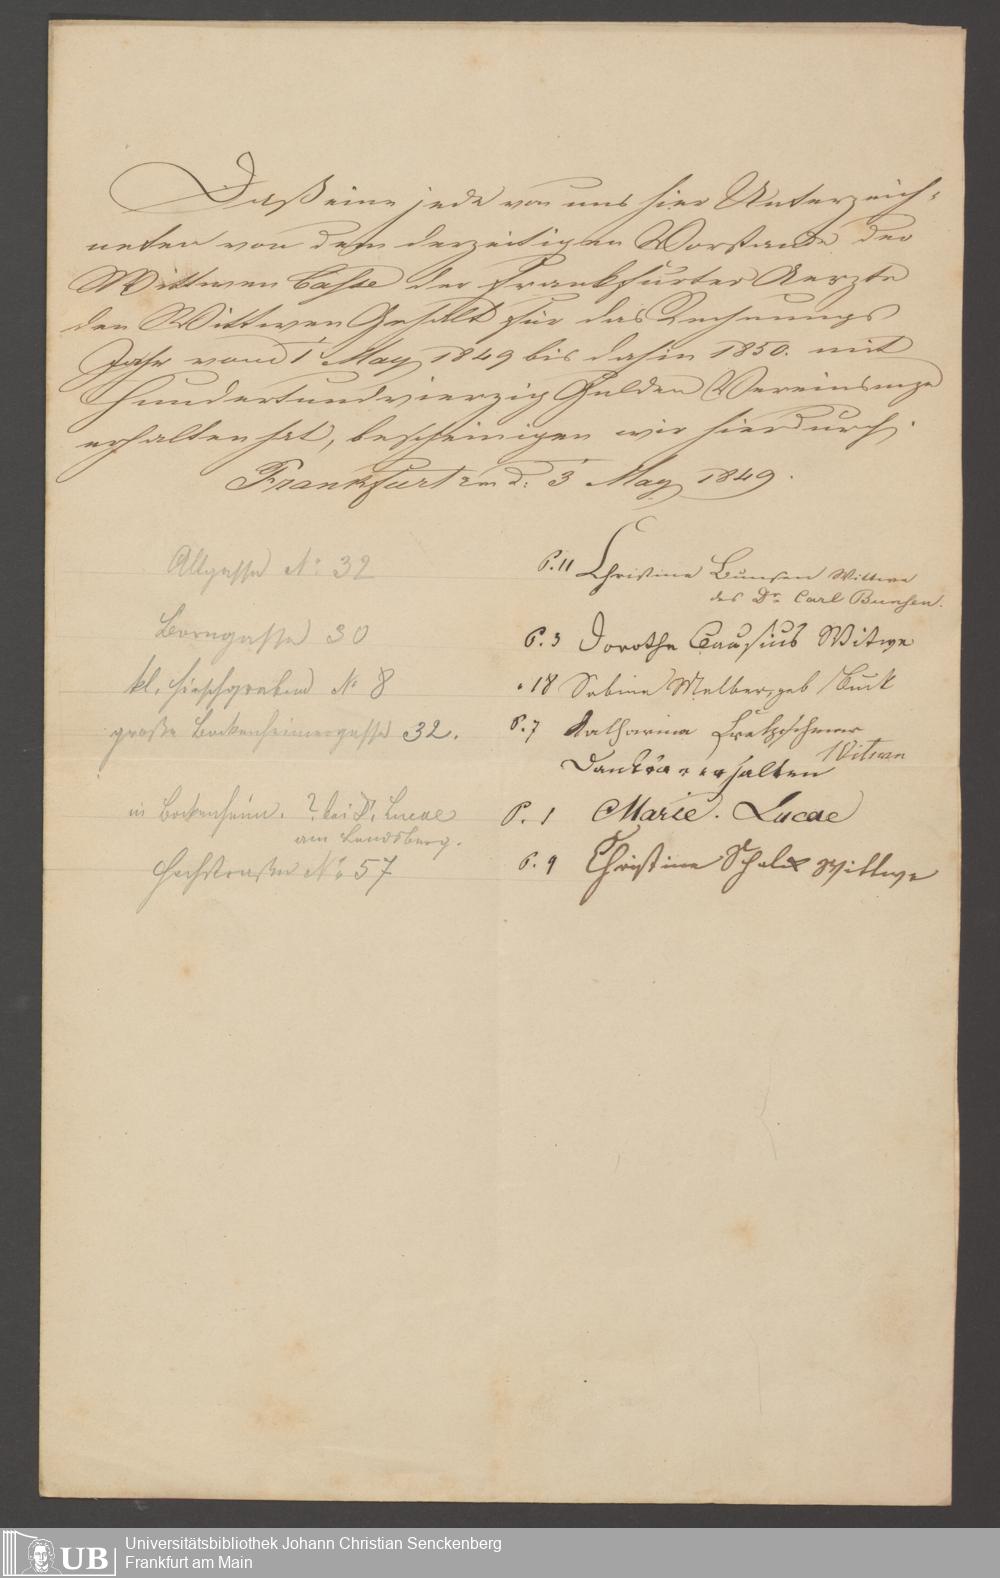 Daß eine jede von uns hier Unterzeich-
neten von dem derzeitigen Vorstande der
Wittwen Casse der Frankfurter Aerzte
den Wittwen Gehalt für das Rechnungs
Jahr vom 1 May 1849 bis dahin 1850. mit
Hundertundvierzig Gulden
erhalten hat, bescheinigen wir hierdurch.
Frankfurt am d: 3 May 1849.
Allgasse No. 32
P. 11 Christine Bunsen Wittwe
des Dr. Carl Bunsen.
Borngasse 30
P. 3 Dorothe Wittwe
kl. Hirschgraben No 8
" 18 Sabine Melber, geb
große Bockenheimergasse 32.
P. 7 Katharina
Witwe
Dankbar erhalten
in Bockenheim. ? bei Dr. Lucae
am
P. 1 Marie. Lucae
Hochstraße No. 57
P. 9 Christine Schalx Wittwe
Universitätsbibliothek Johann Christian Senckenberg
Frankfurt am Main
UB